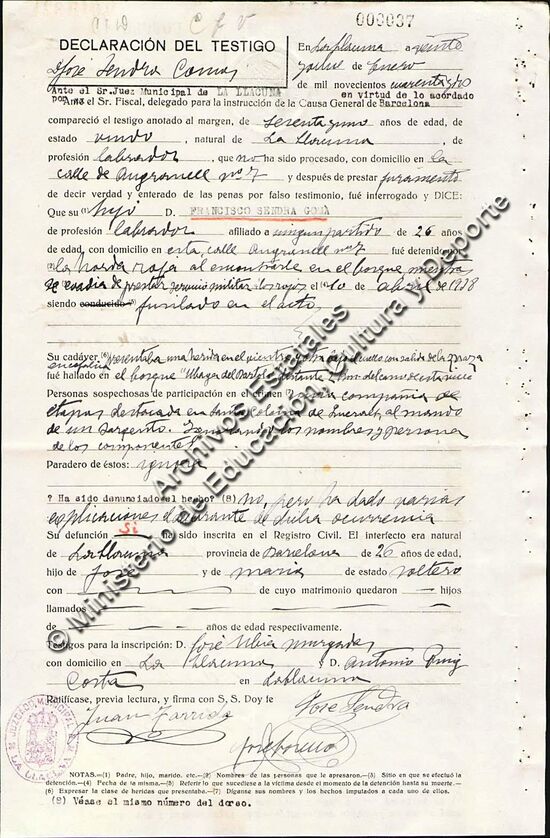 000037
DECLARACIÓN DEL TESTIGO
José Sendra Comas
En La Llacuna a veinte
y de Enero
de mil novecientos cuarenta y dos
Ante el Sr. Juez Municipal de LA LLACUNA en virtud de lo acordado
por el Sr. Fiscal, delegado para la instrucción de la Causa General de Barcelona
compareció el testigo anotado al margen, de sesenta y uno años de edad, de
estado viudo, natural de La Llacuna, de
profesión labrador, que no ha sido procesado, con domicilio en la
calle de Angranell nº 7 y después de prestar juramento
de decir verdad y enterado de las penas por falso testimonio, fué interrogado y DICE:
Que su hijo D. FRANCISCO SENDRA GOMÀ
de profesión labrador afiliado a ningun partido de 26 años
de edad, con domicilio en esta, calle Angranell nº 7 fué detenido por
la horda roja al encontrarle en el bosque
de prestar servicio militar los rojos el 10 de abril de 1938
siendo conducido fusilado en el acto
Su cadáver (6) presentaba una herida en el vientre con salida de la
fué hallado en el bosque
Personas sospechosas de participación en el crimen (7) una compañia de
etapas destacada en Santa Coloma de Queralt, al mando
de un Sargento. Ignorando los nombres y personas
de los componentes
Paradero de éstos: ignora
? Ha sido denunciado el hecho? (8) no, pero ha dado varias
explicaciones de ocurrencia
Su defunción si ha sido inscrita en el Registro Civil. El interfecto era natural
de La Llacuna provincia de Barcelona de 26 años de edad,
hijo de José y de Maria de estado soltero
con de cuyo matrimonio quedaron hijos
llamados
de años de edad respectivamente.
Testigos para la inscripción: D. José
con domicilio en La Llacuna y D. Antonio Puig
Costa en La Llacuna
Ratifícase, previa lectura, y firma con S. S. Doy fe
Juan Garrido José Sendra
NOTAS.—(1) Padre, hijo, marido, etc.—(2) Nombres de las personas que le apresaron.—(3) Sitio en que se efectuó la
detención.—(4) Fecha de la misma.—(5) Referir lo que sucediese a la víctima desde el momento de la detención hasta su muerte.—
(6) Expresar la clase de heridas que presentaba.—(7) Díganse sus nombres y los hechos imputados a cada uno de ellos.
(8) Véase el mismo número del dorso.
© Ministerio de Educación, Cultura y Deporte
Archivos Estatales